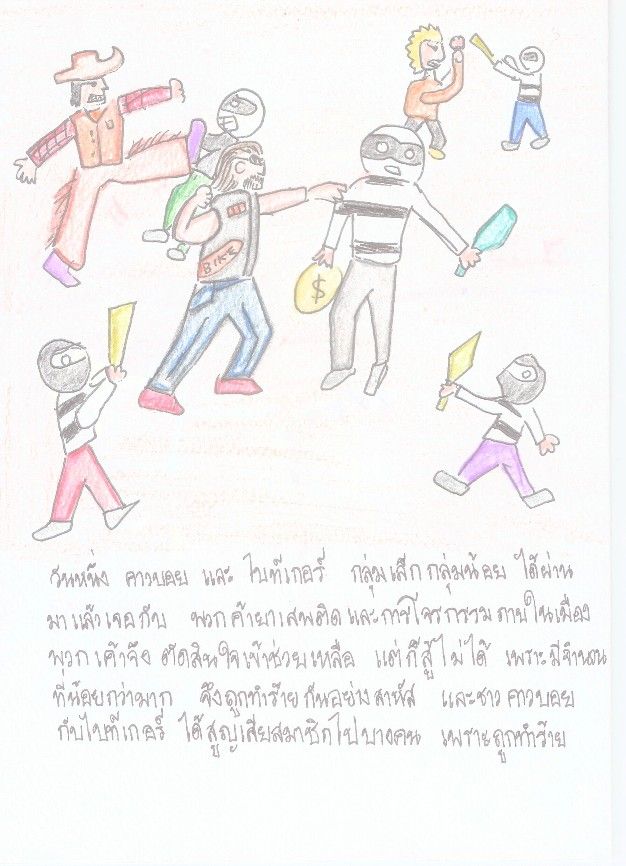 BIKE
$
วันหนึ่ง คาวบอย และ ไบท์เกอร์ กลุ่มเล็กกลุ่มน้อย ได้ผ่าน
มาแล้วเจอกับ พวกค้ายาเสพติดและการโจรกรรมภายในเมือง
พวกเค้าจึง ตัดสินใจเข้าช่วยเหลือ แต่ก็สู้ไม่ได้ เพราะมีจำนวน
ที่น้อยกว่ามาก จึงถูกทำร้ายกันอย่างสาหัส และชาวคาวบอย
กับไบท์เกอร์ ได้สูญเสียสมาชิกไปบางคน เพราะถูกทำร้าย